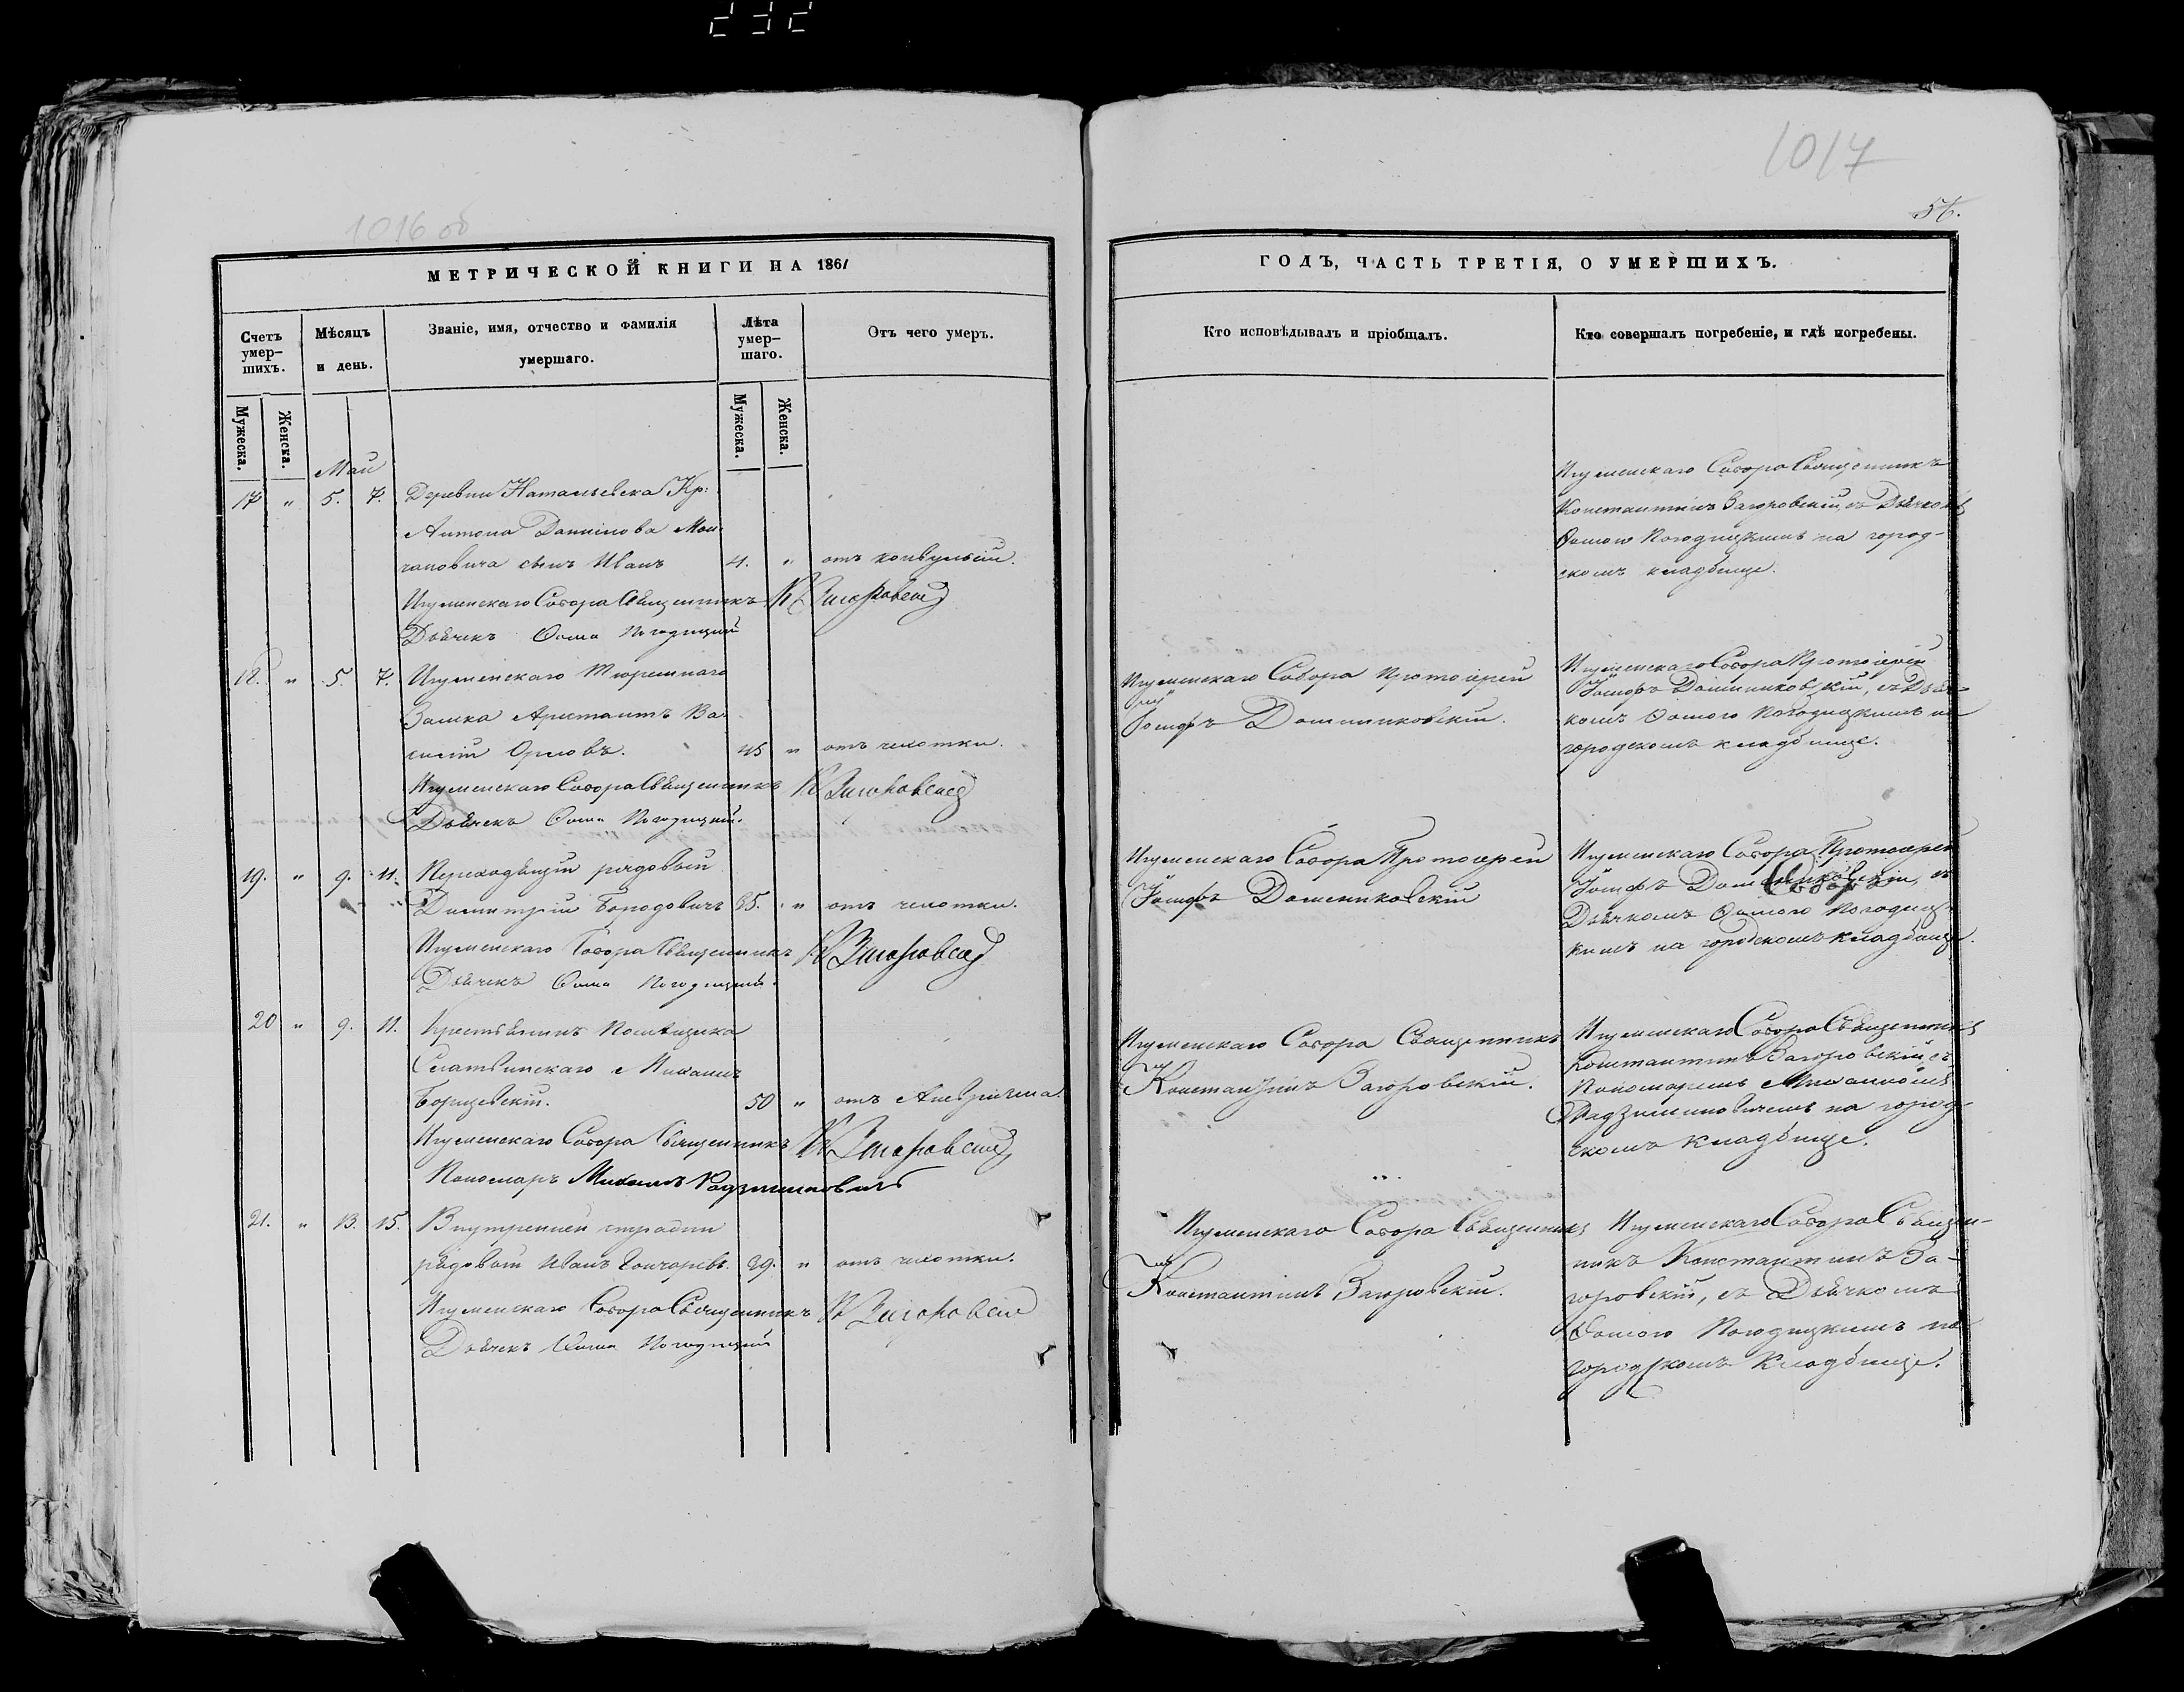 232
1017
1016 об
56.
МЕТРИЧЕСКОЙ КНИГИ НА 1861
ГОДЪ, ЧАСТЬ ТРЕТІЯ, О УМЕРШИХЪ.
Счетъ умер-
шихъ.
Мѣсяцъ
и день.
Званіе, имя, отчество и фамилія
умершаго.
Лѣта
умер-
шаго.
Отъ чего умеръ.
Кто исповѣдывалъ и пріобщалъ.
Кто совершалъ погребеніе, и гдѣ погребены.
Мужеска.
Женска.
Мужеска.
Женска.
Май
17 " 5. 7. Деревни Натальевска Кр:
Антона Даниилова Мол-
чановича сынъ Иванъ 4. " отъ конвульсіи.
Игуменскаго Собора Священникъ К Загоровскій
Дьячекъ Ѳома Погодицкій
Игуменскаго Собора Священникъ
Константинъ Загоровскій, съ Дьячкомъ
Ѳомою Погодицкимъ на город-
скомъ кладбище.
18. " 5. 7. Игуменскаго Тюремнаго
Замка Арестантъ Ва-
силій Орловъ. 45 " отъ чахотки.
Игуменскаго Собора Священникъ К Загоровскій
Дьячекъ Ѳома Погодицкій.
Игуменскаго Собора Протоіерей
Іосифъ Дашниковскій.
Игуменскаго Собора Протоіерей
Іосифъ Дашниковскій, съ Дьяч-
комъ Ѳомою Погодицкимъ на
городскомъ кладбище.
19. " 9. 11. Переходящій рядовый
Димитрій Бородовичъ 35. " отъ чахотки.
Игуменскаго Собора Священникъ К Загоровскій
Дьячекъ Ѳома Погодицкій.
Игуменскаго Собора Протоіерей
Іосифъ Дашниковскій
Игуменскаго Собора Протоіерей
Іосифъ Дашниковскій, съ
Дьячкомъ Ѳомою Погодиц-
кимъ на городскомъ кладбище.
20 " 9. 11. Крестьянинъ Помѣщика
Слатвинскаго Михаилъ
Борщевскій. 50 "
Игуменскаго Собора Священникъ К Загоровскій
Пономарь Михаилъ Радзиминовичъ
Игуменскаго Собора Священникъ
Константинъ Загоровскій.
Игуменскаго Собора Священникъ
Константинъ Загоровскій, съ
Пономаремъ Михаиломъ
Радзиминовичемъ на город-
скомъ кладбище.
21. " 13. 15. Внутренней стражи
рядовый Иванъ Гончаровъ. 29. " отъ чахотки.
Игуменскаго Собора Священникъ К Загоровскій
Дьячекъ Ѳома Погодицкій
Игуменскаго Собора Священникъ
Константинъ Загоровскій.
Игуменскаго Собора Священ-
никъ Константинъ За-
горовскій, съ Дьячкомъ
Ѳомою Погодицкимъ на
городскомъ кладбище.